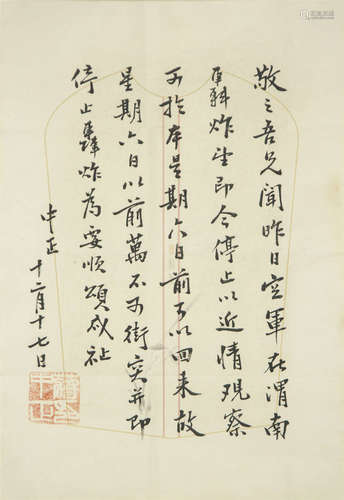 敬之吾兄聞昨日空軍在渭南
轟炸望即令停止以近情观察
于於本星期六日前可以回来故
星期六日以前萬不可衝突并即
停止轟炸為要順頌戎祉
中正
十二月十七日